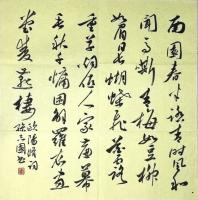 南園春半踏青时风和
闻马嘶青梅如豆柳
如眉日长蝴蝶飞花露
重草烟低人家帘幕
垂秋千慵困解罗衣画
堂双燕栖
欧阳修词